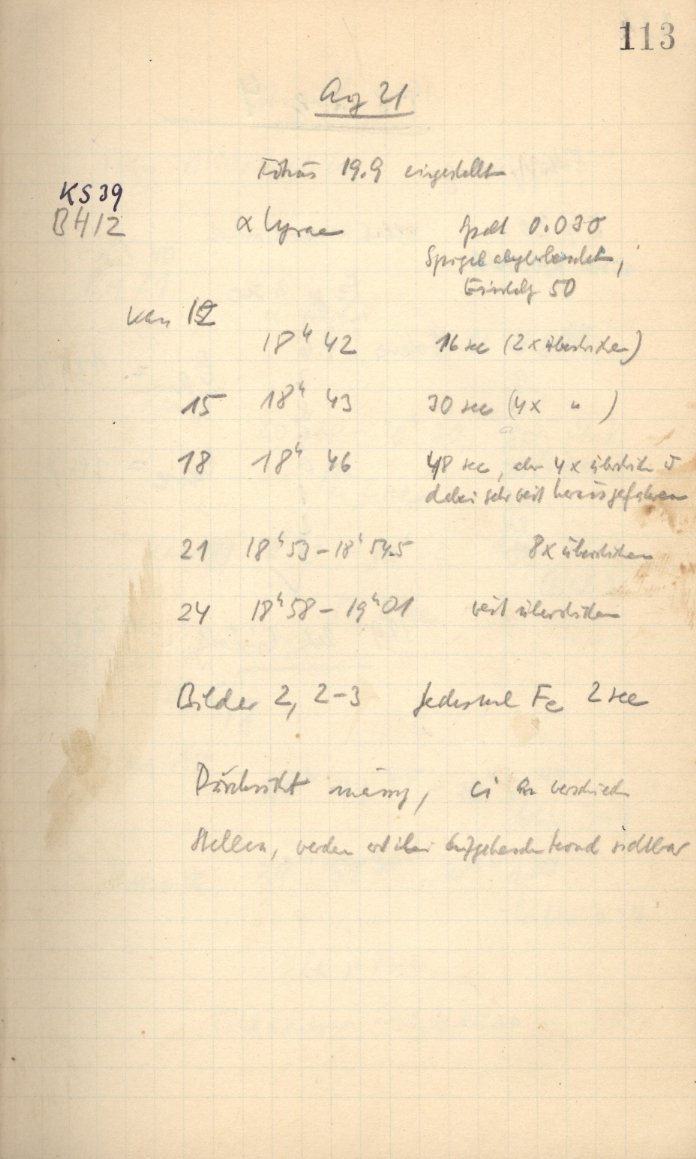 113
Aug 21
Fokus 19.9 eingestellt
KS39
B412
α Lyrae Spalt 0.030
Spiegel abgeblendet,
50
12
18h 42 16 sec (2x überstrichen)
15 18h 43 30 sec (4x " )
18 18h 46 48 sec, aber 4x überstrichen
dabei sehr weit herausgefahren
21 18h53 – 18h54.5 8x überstrichen
24 18h58 – 19h01 weit überstrichen
Bilder 2, 2-3 jedesmal Fe 2 sec
Durchsicht mässig, Ci an verschieden
Stellen, werden erst bei aufgehendem Mond sichtbar